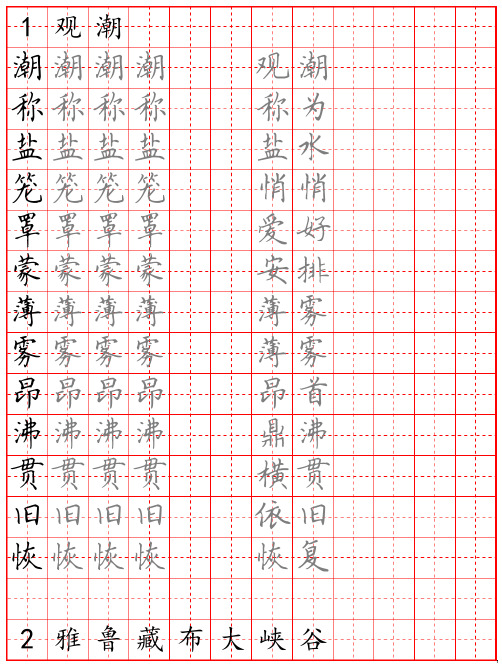 1 观 潮
潮 潮 潮 潮 观 潮
称 称 称 称 称 为
盐 盐 盐 盐 盐 水
笼 笼 笼 笼 悄 悄
罩 罩 罩 罩 爱 好
蒙 蒙 蒙 蒙 安 排
薄 薄 薄 薄 薄 雾
雾 雾 雾 雾 薄 雾
昂 昂 昂 昂 昂 首
沸 沸 沸 沸 鼎 沸
贯 贯 贯 贯 横 贯
旧 旧 旧 旧 依 旧
恢 恢 恢 恢 恢 复
2 雅 鲁 藏 布 大 峡 谷